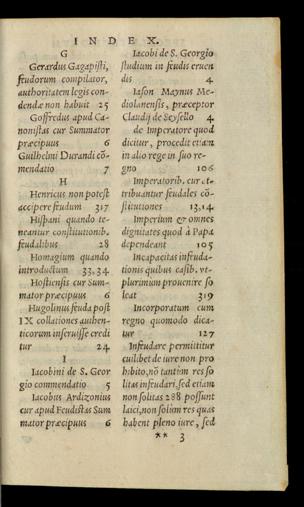 INDEX.
G
Gerardus Gagapisti,
feudorum compilator,
authoritatem legis con-
dendæ non habuit 25
Goffredus apud Ca-
nonistas cur Summator
præcipuus 6
Guilhelmi Durandi cō-
mendatio 7
H
Henricus non potest
accipere feudum 317
Hispani quando te-
neantur constitutionib.
feudalibus 28
Homagium quando
introductum 33,34
Hostiensis cur Sum-
mator præcipuus 6
Hugolinus feuda post
IX collationes authen-
ticorum inseruisse credi
tur 24
I
Iacobini de S. Geor
gio commendatio 5
Iacobus Ardizonius
cur apud Feudistas Sum
mator præcipuus 6
Iacobi de S. Georgio
studium in feudis eruen
dis 4
Iason Maynus Me-
diolanensis, præceptor
Claudij de Seysello 4
de Imperatore quod
dicitur, procedit etiam
in alio rege in suo re-
gno 106
Imperatorib. cur at-
tribuantur feudales cō-
stitutiones 13,14
Imperium & omnes
dignitates quod à Papa
dependeant 105
Incapacitas infeuda-
tionis quibus casib. vt-
plurimum prouenire so
leat 319
Incorporatum cum
regno quomodo dica-
tur 127
Infeudare permittitur
cuilibet de iure non pro
hibito, nō tantùm res so
litas infeudari, sed etiam
non solitas 288 possunt
laici, non solùm res quas
habent pleno iure, sed
** 3